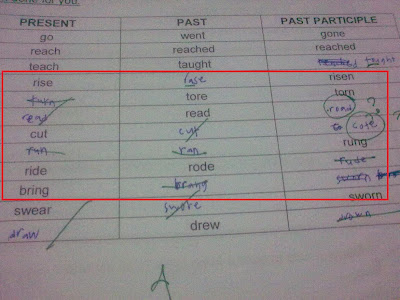 done for you.
PRESENT PAST PAST PARTICIPLE
go went gone
reach reached reached
teach taught taught
rise rise risen
turn tore torn
read read road ?
cut cut cote ?
run ran rung
ride rode rude
bring brang
swear swore sworn
draw drew drawn
A